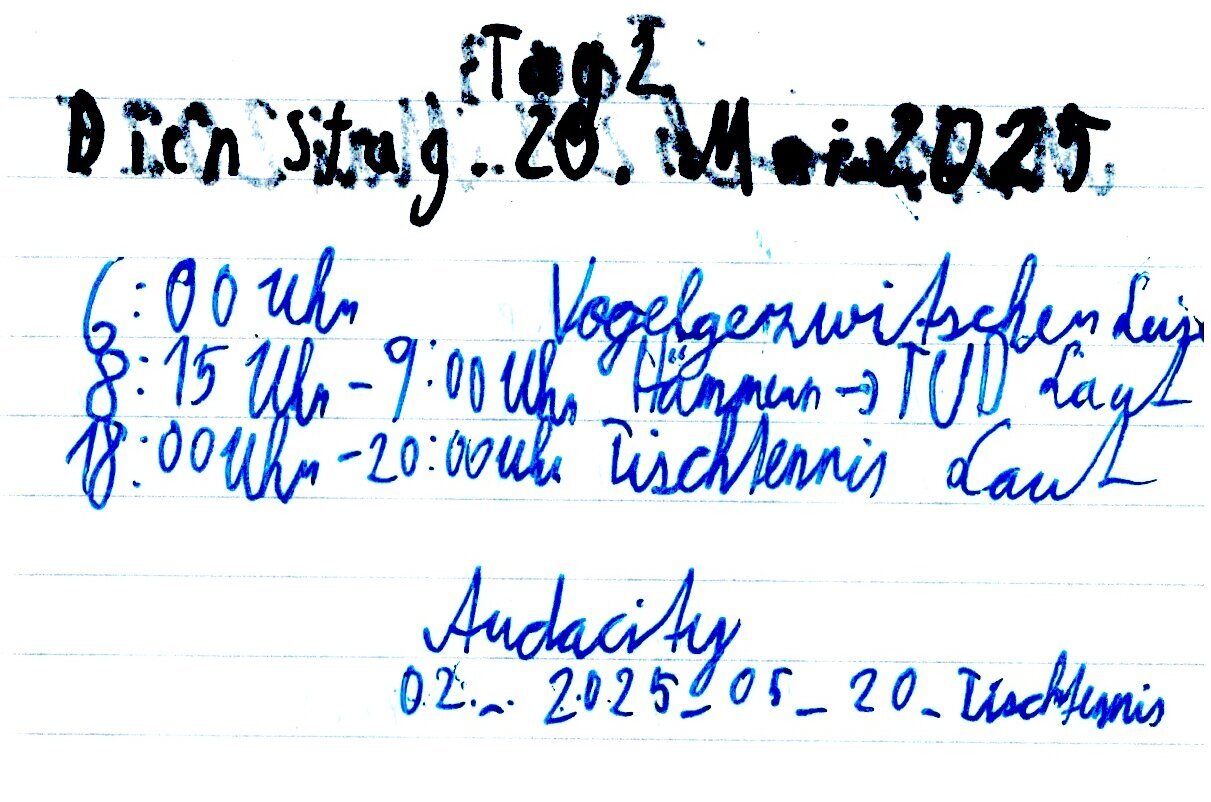 Tag 2
Dienstag. 20. Mai 2025
6:00 Uhr Vogelgezwitscher Leise
8:15 Uhr - 9:00 Uhr Hämmern → TUD Laut
18:00 Uhr - 20:00 Uhr Tischtennis Laut
Audacity
02_2025_05_20_Tischtennis